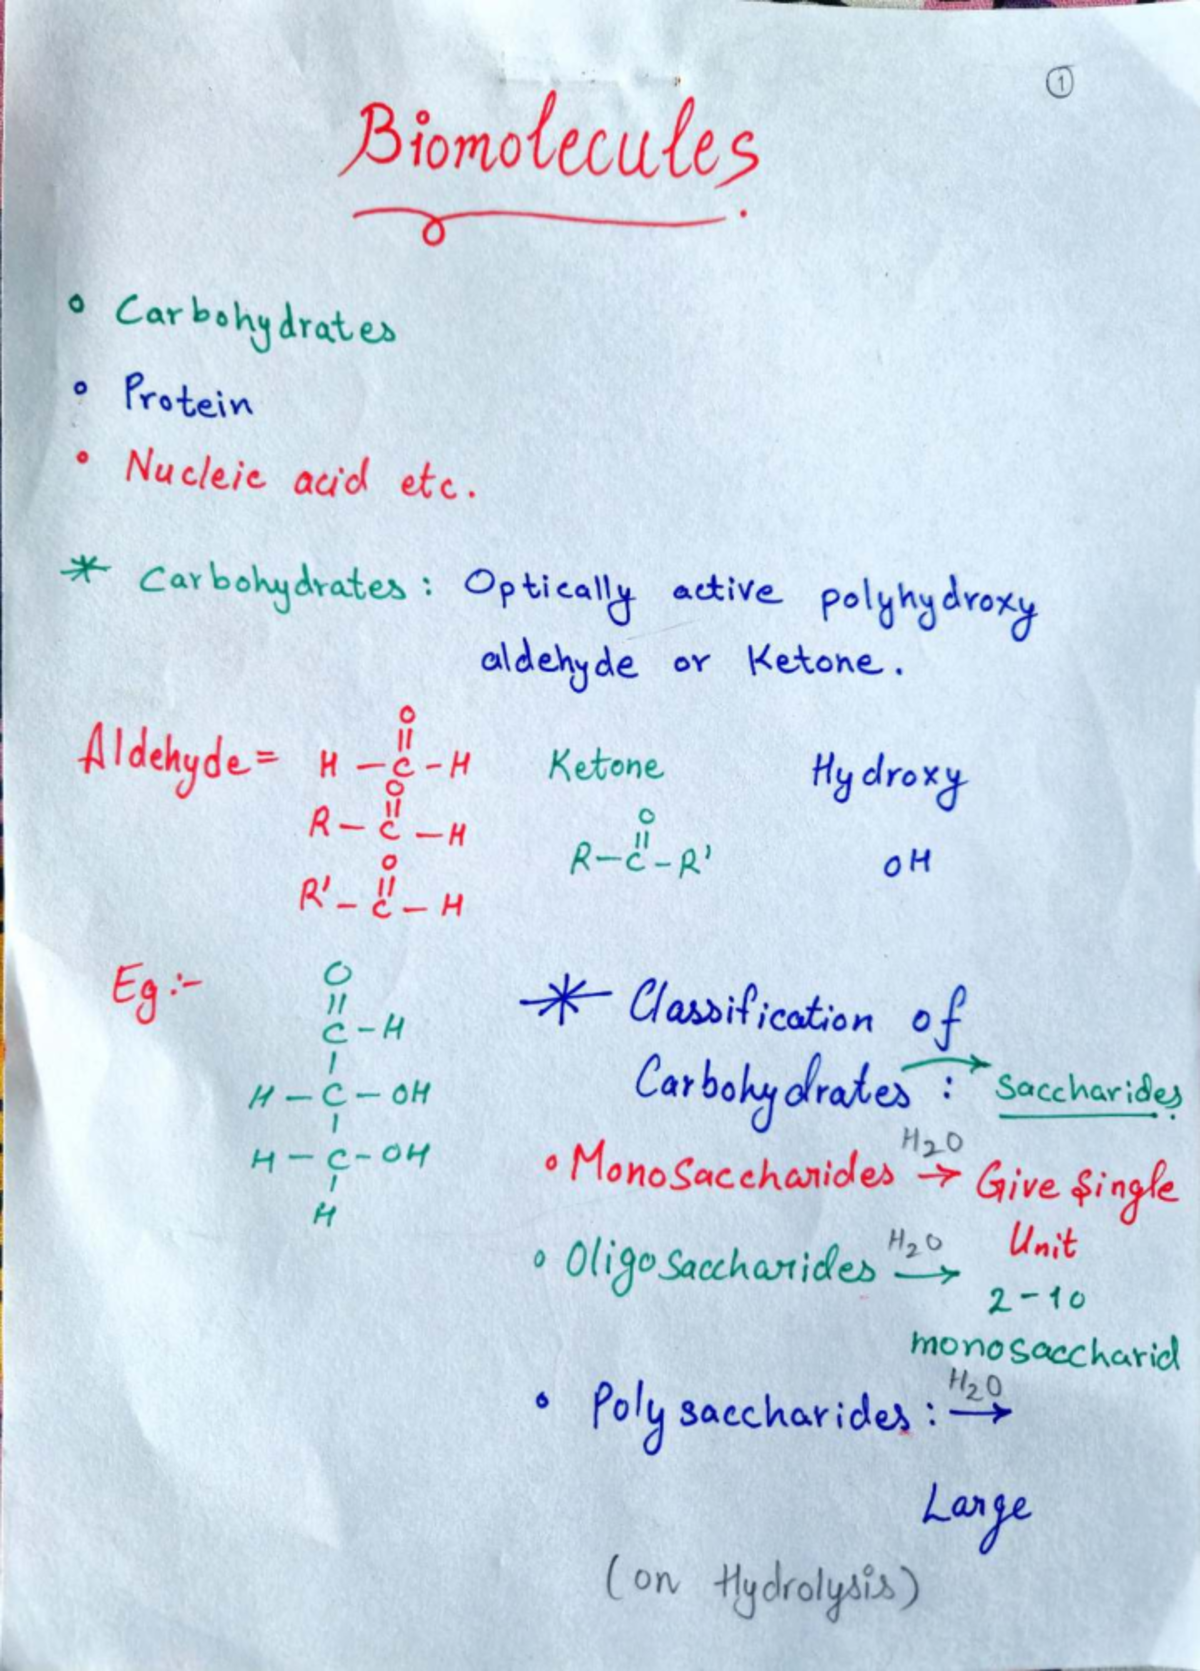 1
Biomolecules
Carbohydrates
Protein
Nucleic acid etc.
* Carbohydrates : Optically active polyhydroxy
aldehyde or Ketone.
Aldehyde = H – C – H
O
||
R – C – H
O
||
R' – C – H
O
||
Ketone
O
||
R – C – R'
Hydroxy
OH
Eg :-
O
||
C – H
|
H – C – OH
|
H – C – OH
|
H
* Classification of
Carbohydrates : → Saccharides
MonoSaccharides H2O → Give Single
Unit
OligoSaccharides H2O →
2 – 10
monosaccharid
Polysaccharides : H2O →
Large
(on Hydrolysis)